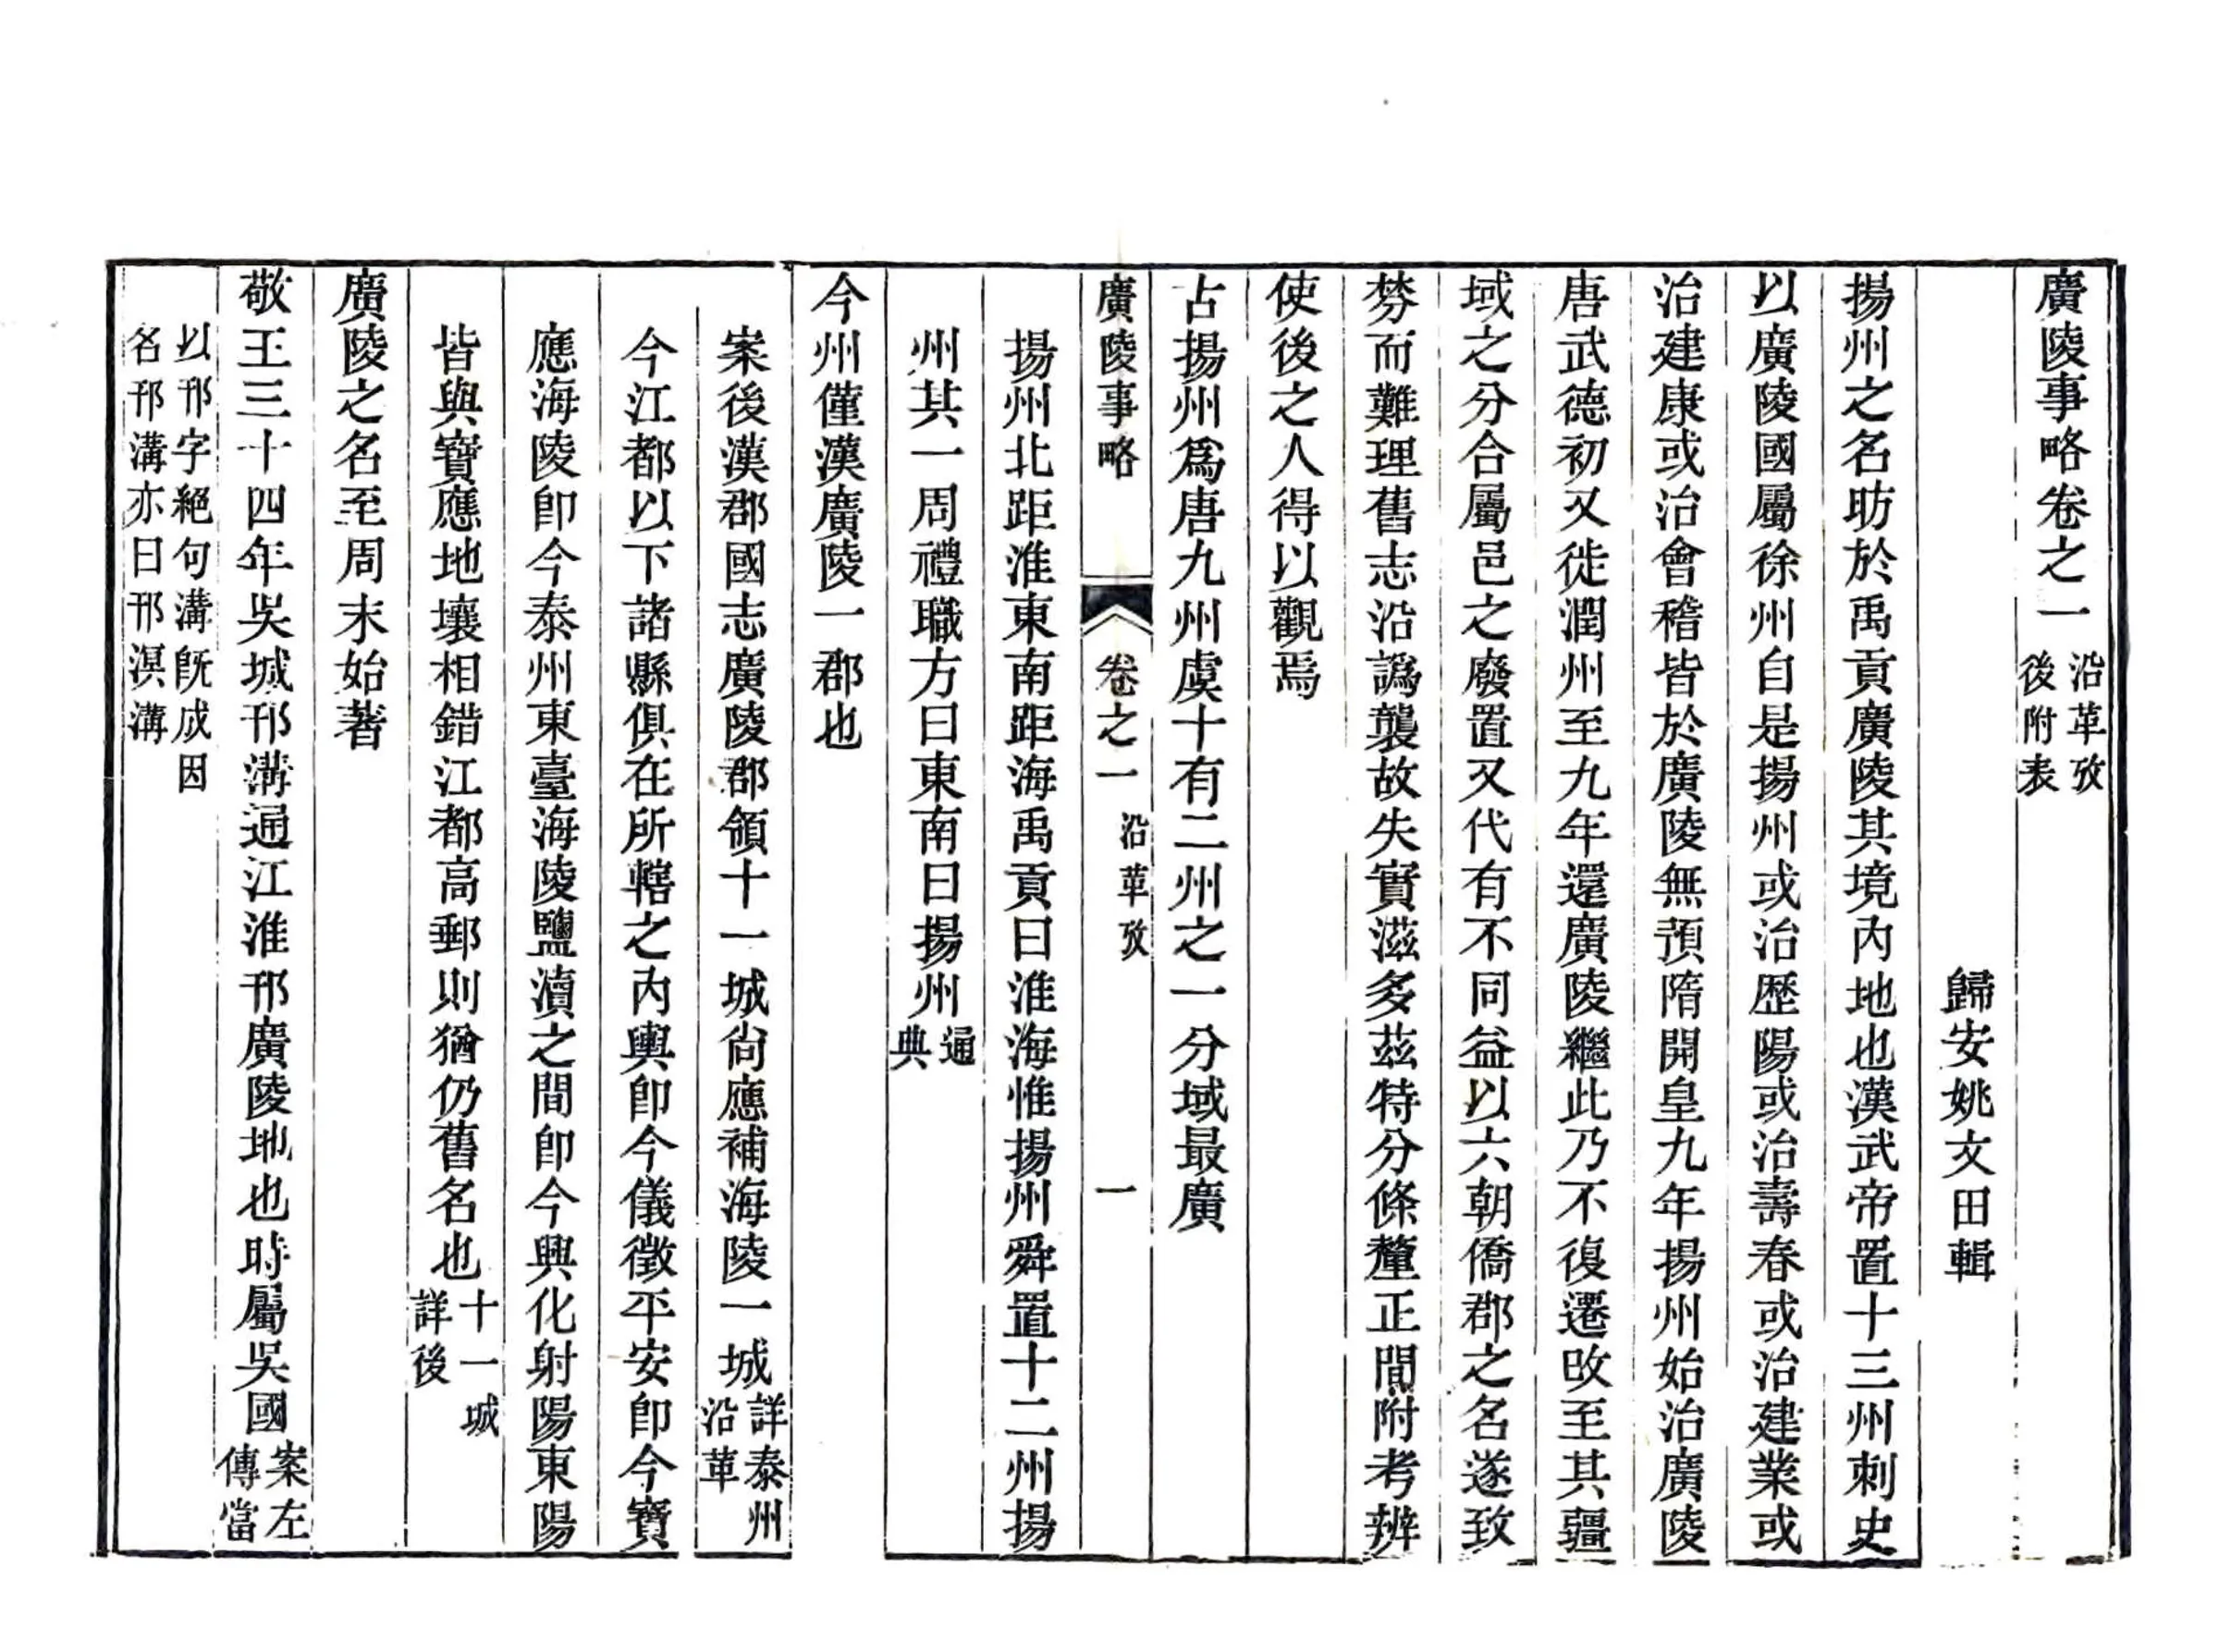 廣陵事略卷之一 沿革攷後附表
歸安姚文田輯
揚州之名昉於禹貢廣陵其境內地也漢武帝置十三州刺史
以廣陵國屬徐州自是揚州或治歷陽或治壽春或治建業或
治建康或治會稽皆於廣陵無預隋開皇九年揚州始治廣陵
唐武德初又徙潤州至九年還廣陵繼此乃不復遷攺至其疆
域之分合屬邑之廢置又代有不同益以六朝僑郡之名遂致
棼而難理舊志沿譌襲故失實滋多茲特分條釐正間附考辨
使後之人得以觀焉
占揚州爲唐九州虞十有二州之一分域最廣
廣陵事略 卷之一 沿革攷 一
揚州北距淮東南距海禹貢曰淮海惟揚州舜置十二州揚
州其一周禮職方曰東南曰揚州通典
今州僅漢廣陵一郡也
案後漢郡國志廣陵郡領十一城尙應補海陵一城詳泰州沿革
今江都以下諸縣俱在所轄之內輿卽今儀徵平安卽今寶
應海陵卽今泰州東臺海陵鹽瀆之間卽今興化射陽東陽
皆與寶應地壤相錯江都高郵則猶仍舊名也十一城詳後
廣陵之名至周末始著
敬王三十四年吳城邗溝通江淮邗廣陵地也時屬吳國案左傳當
以邗字絕句溝旣成因
名邗溝亦曰邗溟溝